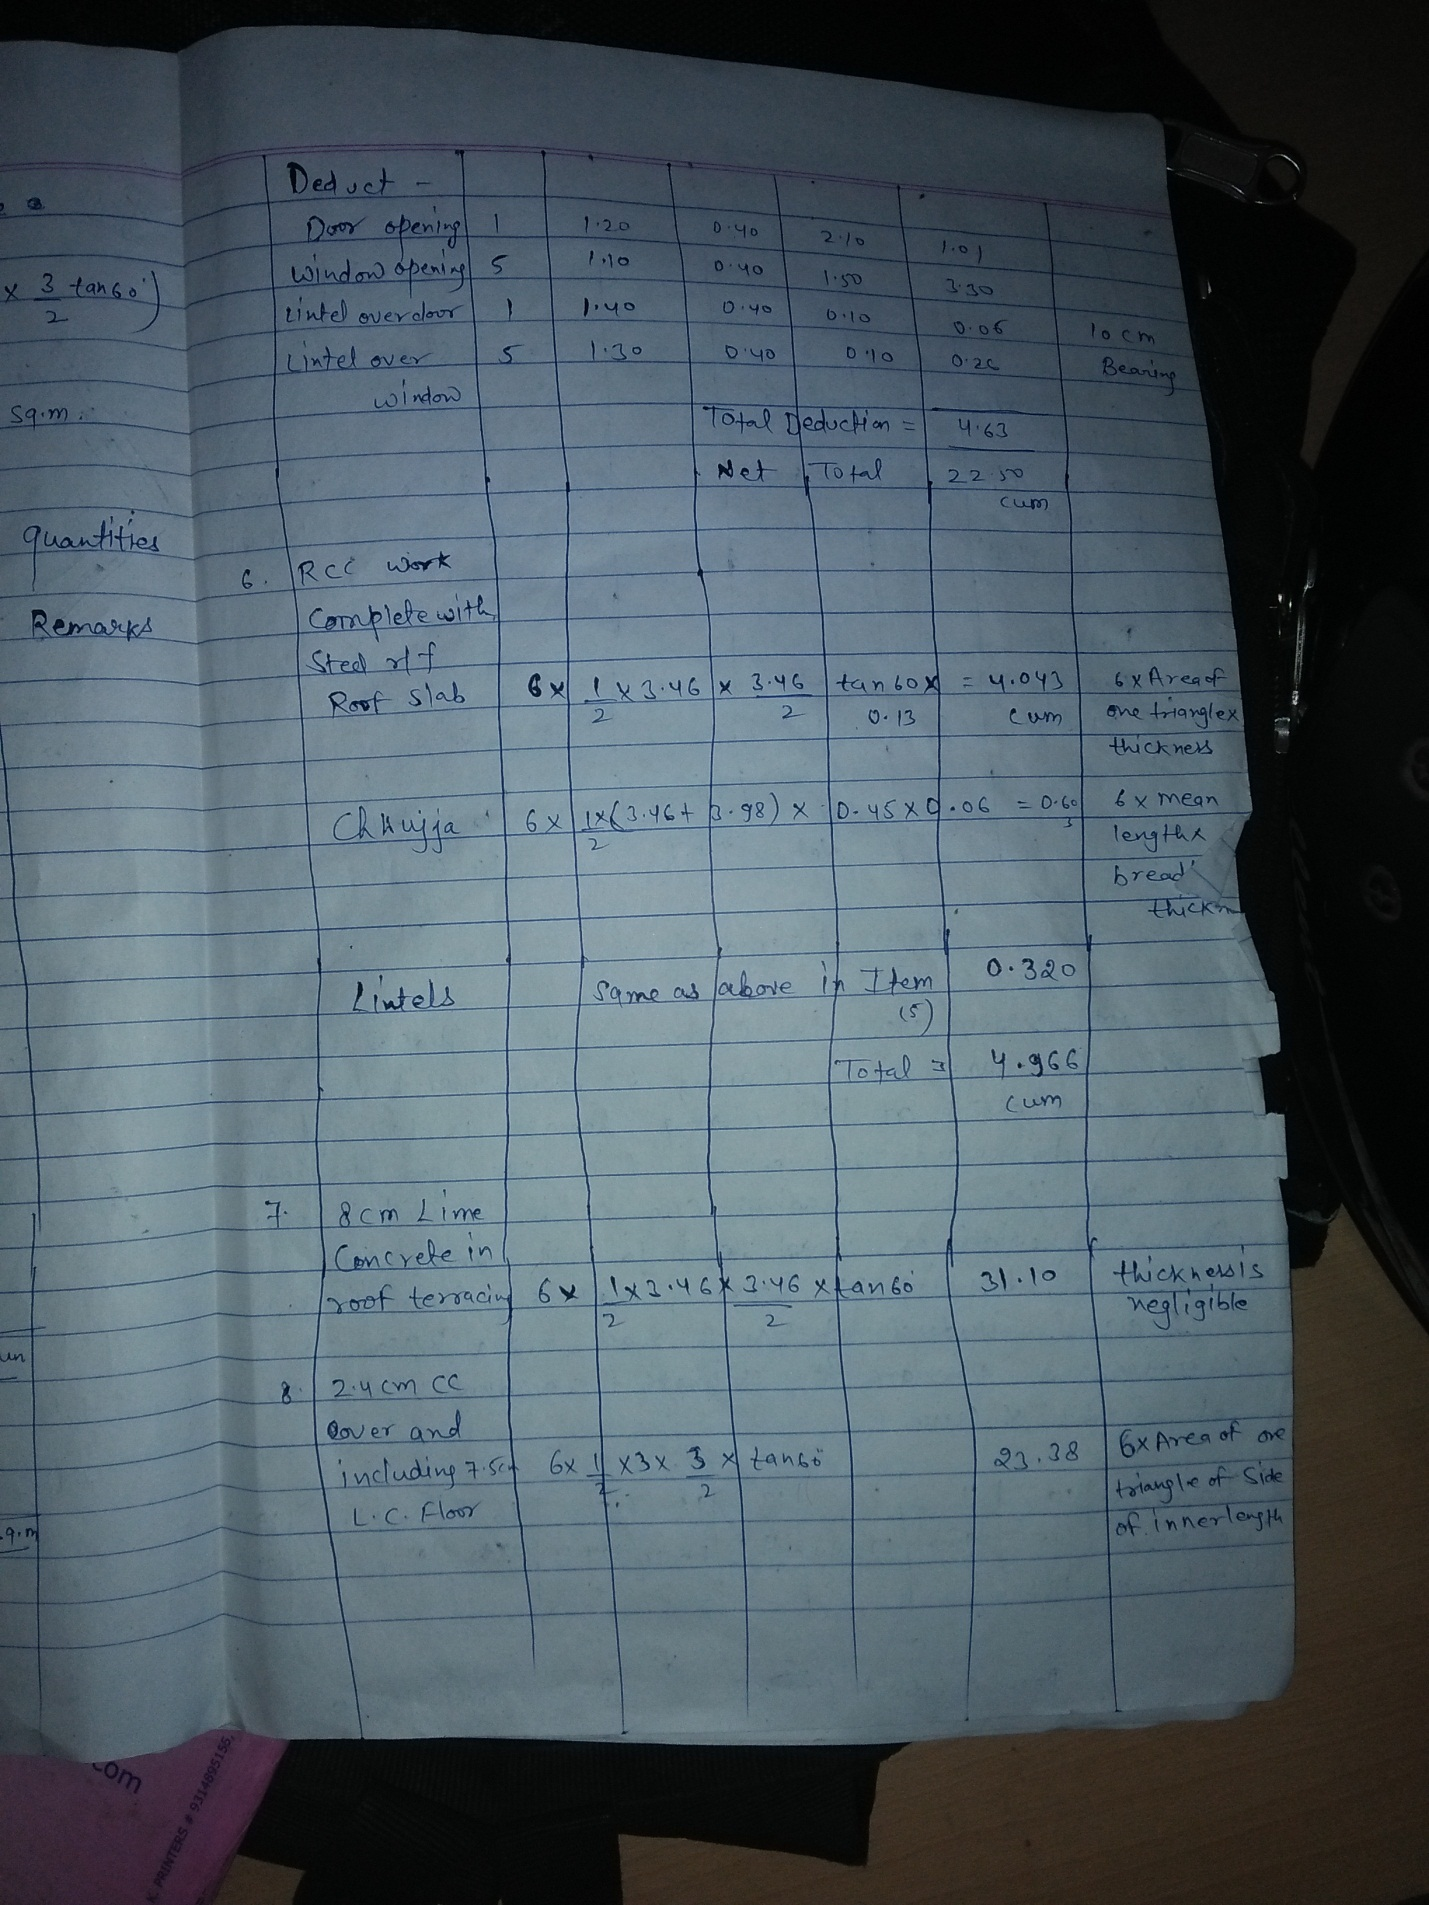 x 3/2 tan60°)
sq.m.
quantities
Remarks
Deduct -
Door opening 1 1.20 0.40 2.10 1.01
window opening 5 1.10 0.40 1.50 3.30
Lintel over door 1 1.40 0.40 0.10 0.06 10 cm
Lintel over 5 1.30 0.40 0.10 0.26 Bearing
window
Total Deduction = 4.63
Net Total 22.50
cum
6. RCC work
Complete with
Steel r/f
Roof Slab 6 x 1/2 x 3.46 x 3.46/2 tan60x 0.13 = 4.043 cum 6 x Area of
one triangle x
thickness
Chhujja 6 x 1/2 x (3.46 + 3.98) x 0.45 x 0.06 = 0.603 6 x mean
length x
bread
thickn
Lintels Same as above in Item (5) 0.320
Total = 4.966
cum
7. 8 cm Lime
Concrete in
roof terracing 6 x 1/2 x 3.46 x 3.46/2 x tan60° 31.10 thickness is
negligible
8. 2.4 cm CC
Cover and
including 7.5cm 6 x 1/2 x 3 x 3/2 x tan60° 23.38 6 x Area of one
L.C. Floor triangle of Side
of inner length
.com
K. PRINTERS # 9314895156,